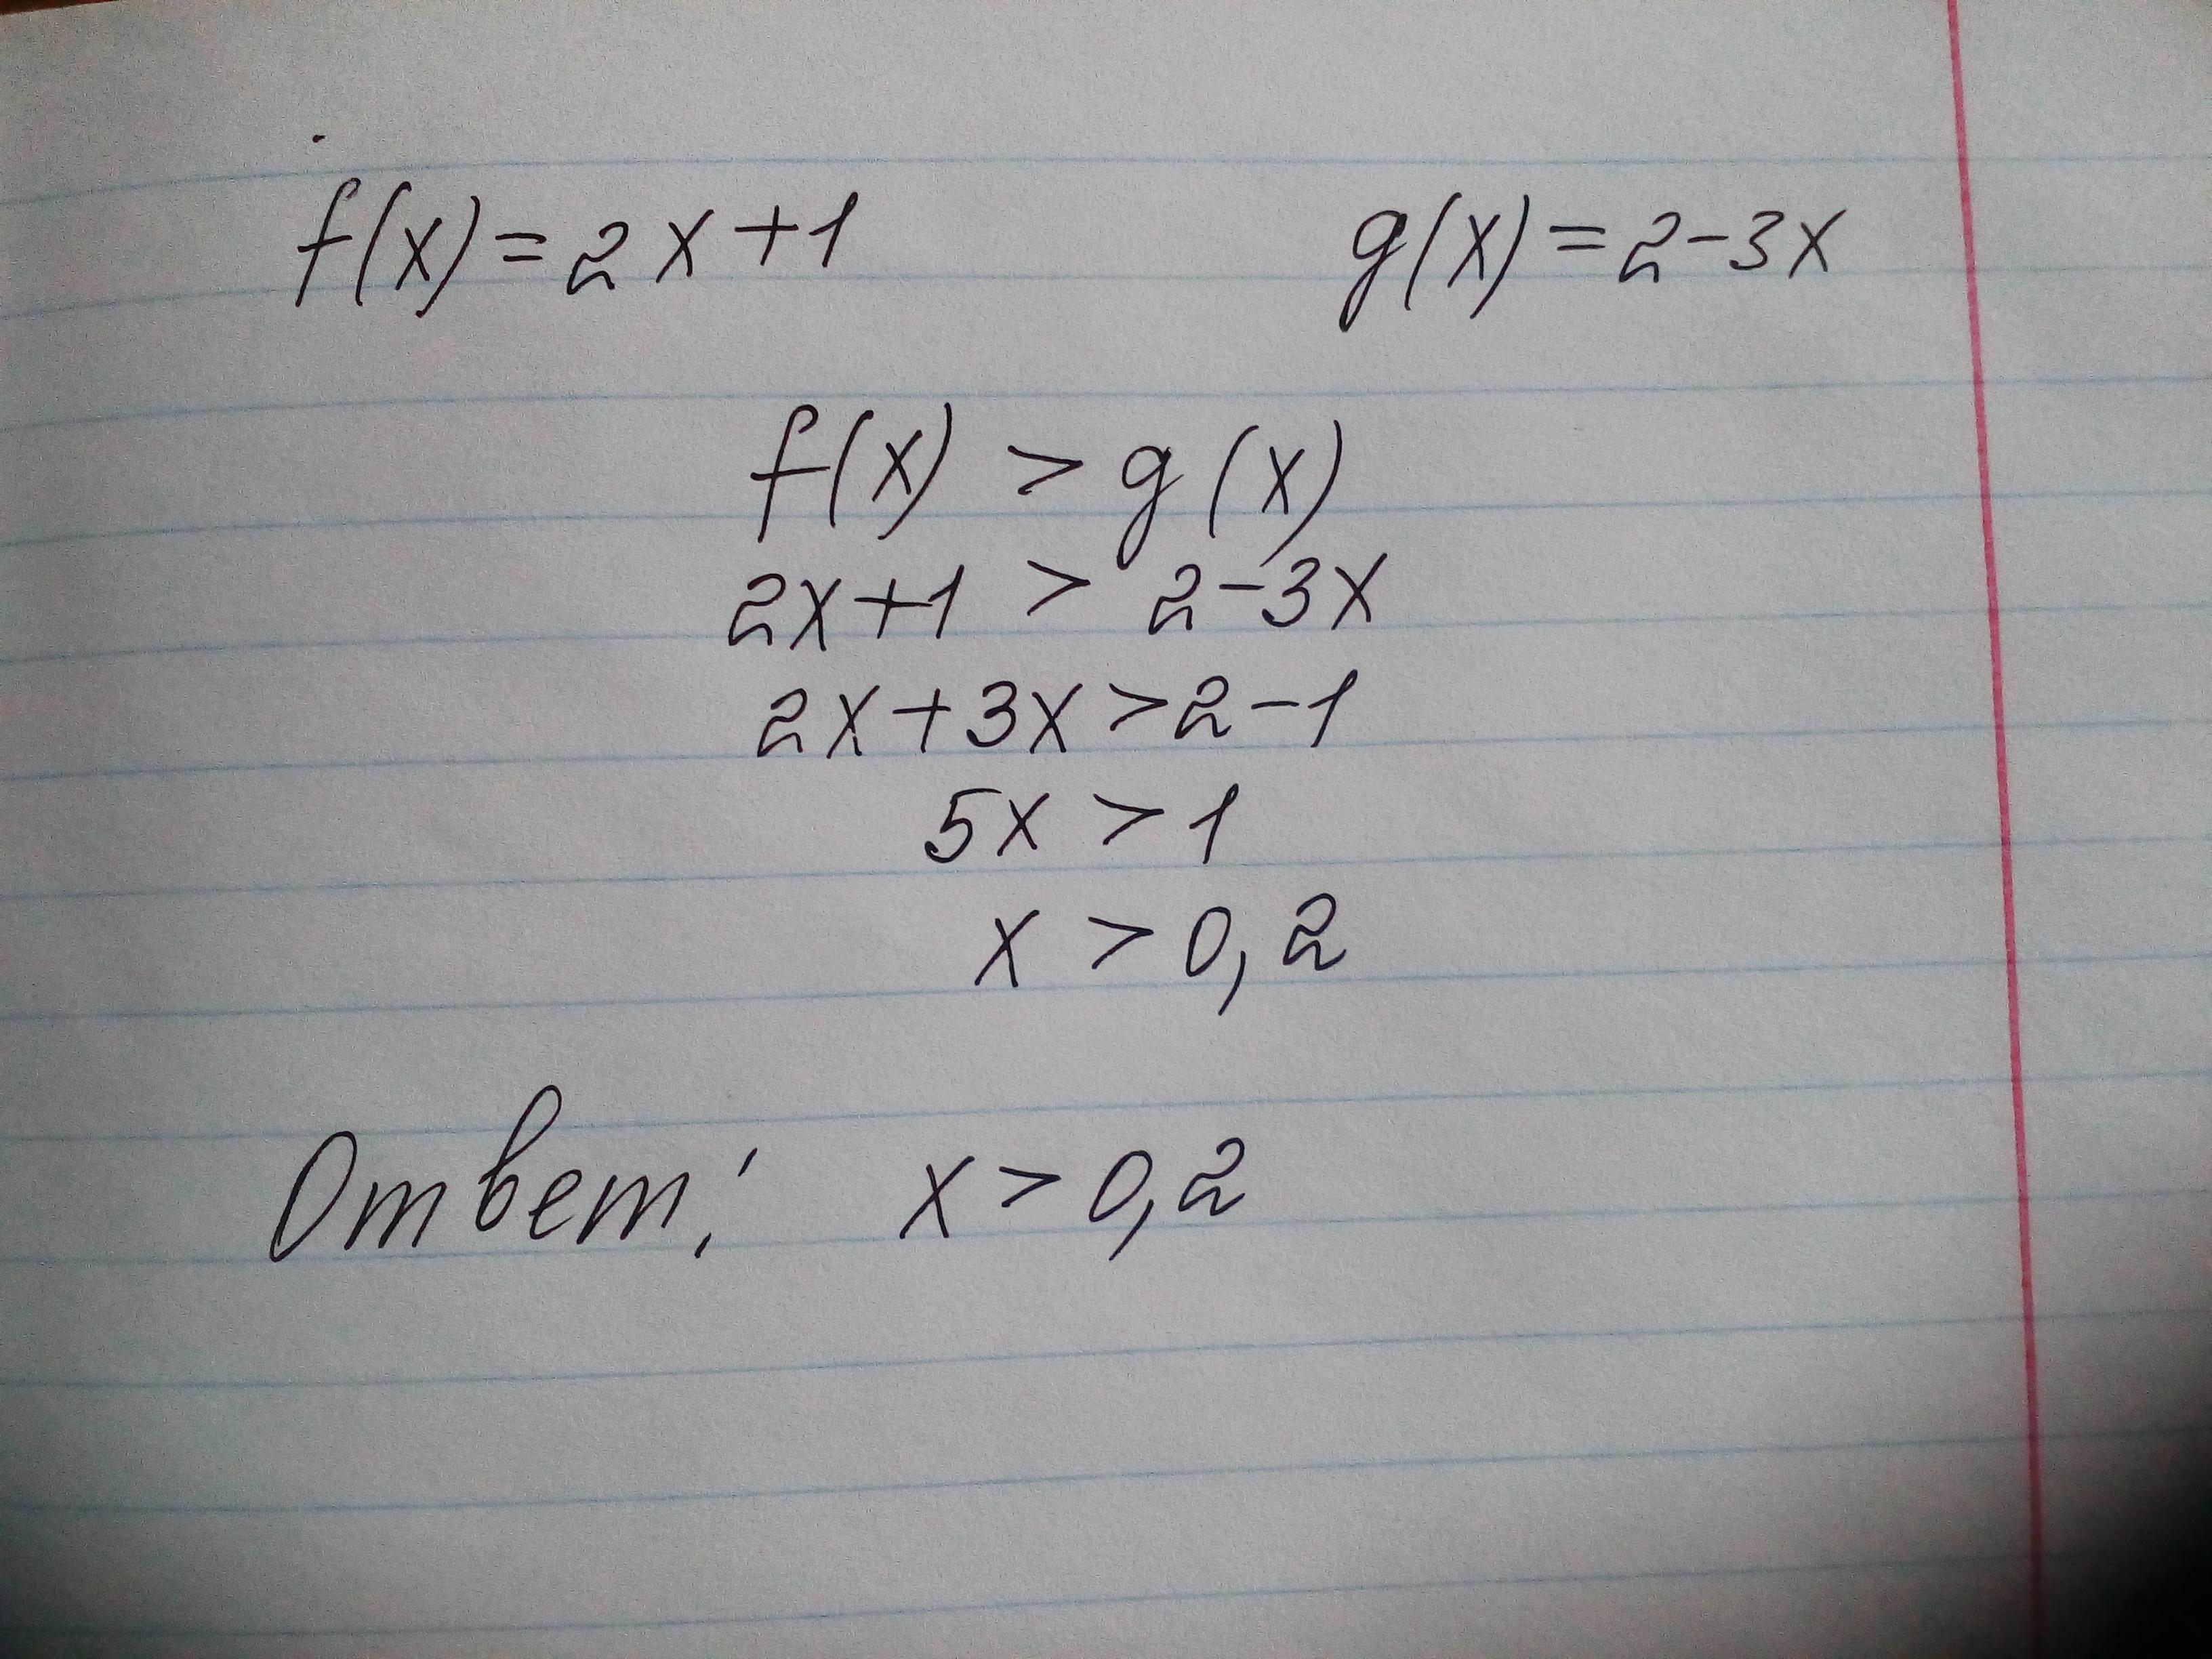 f(x)=2x+1 g(x)=2-3x
f(x) > g(x)
2x+1 > 2-3x
2x+3x>2-1
5x > 1
x > 0,2
Ответ: x > 0,2